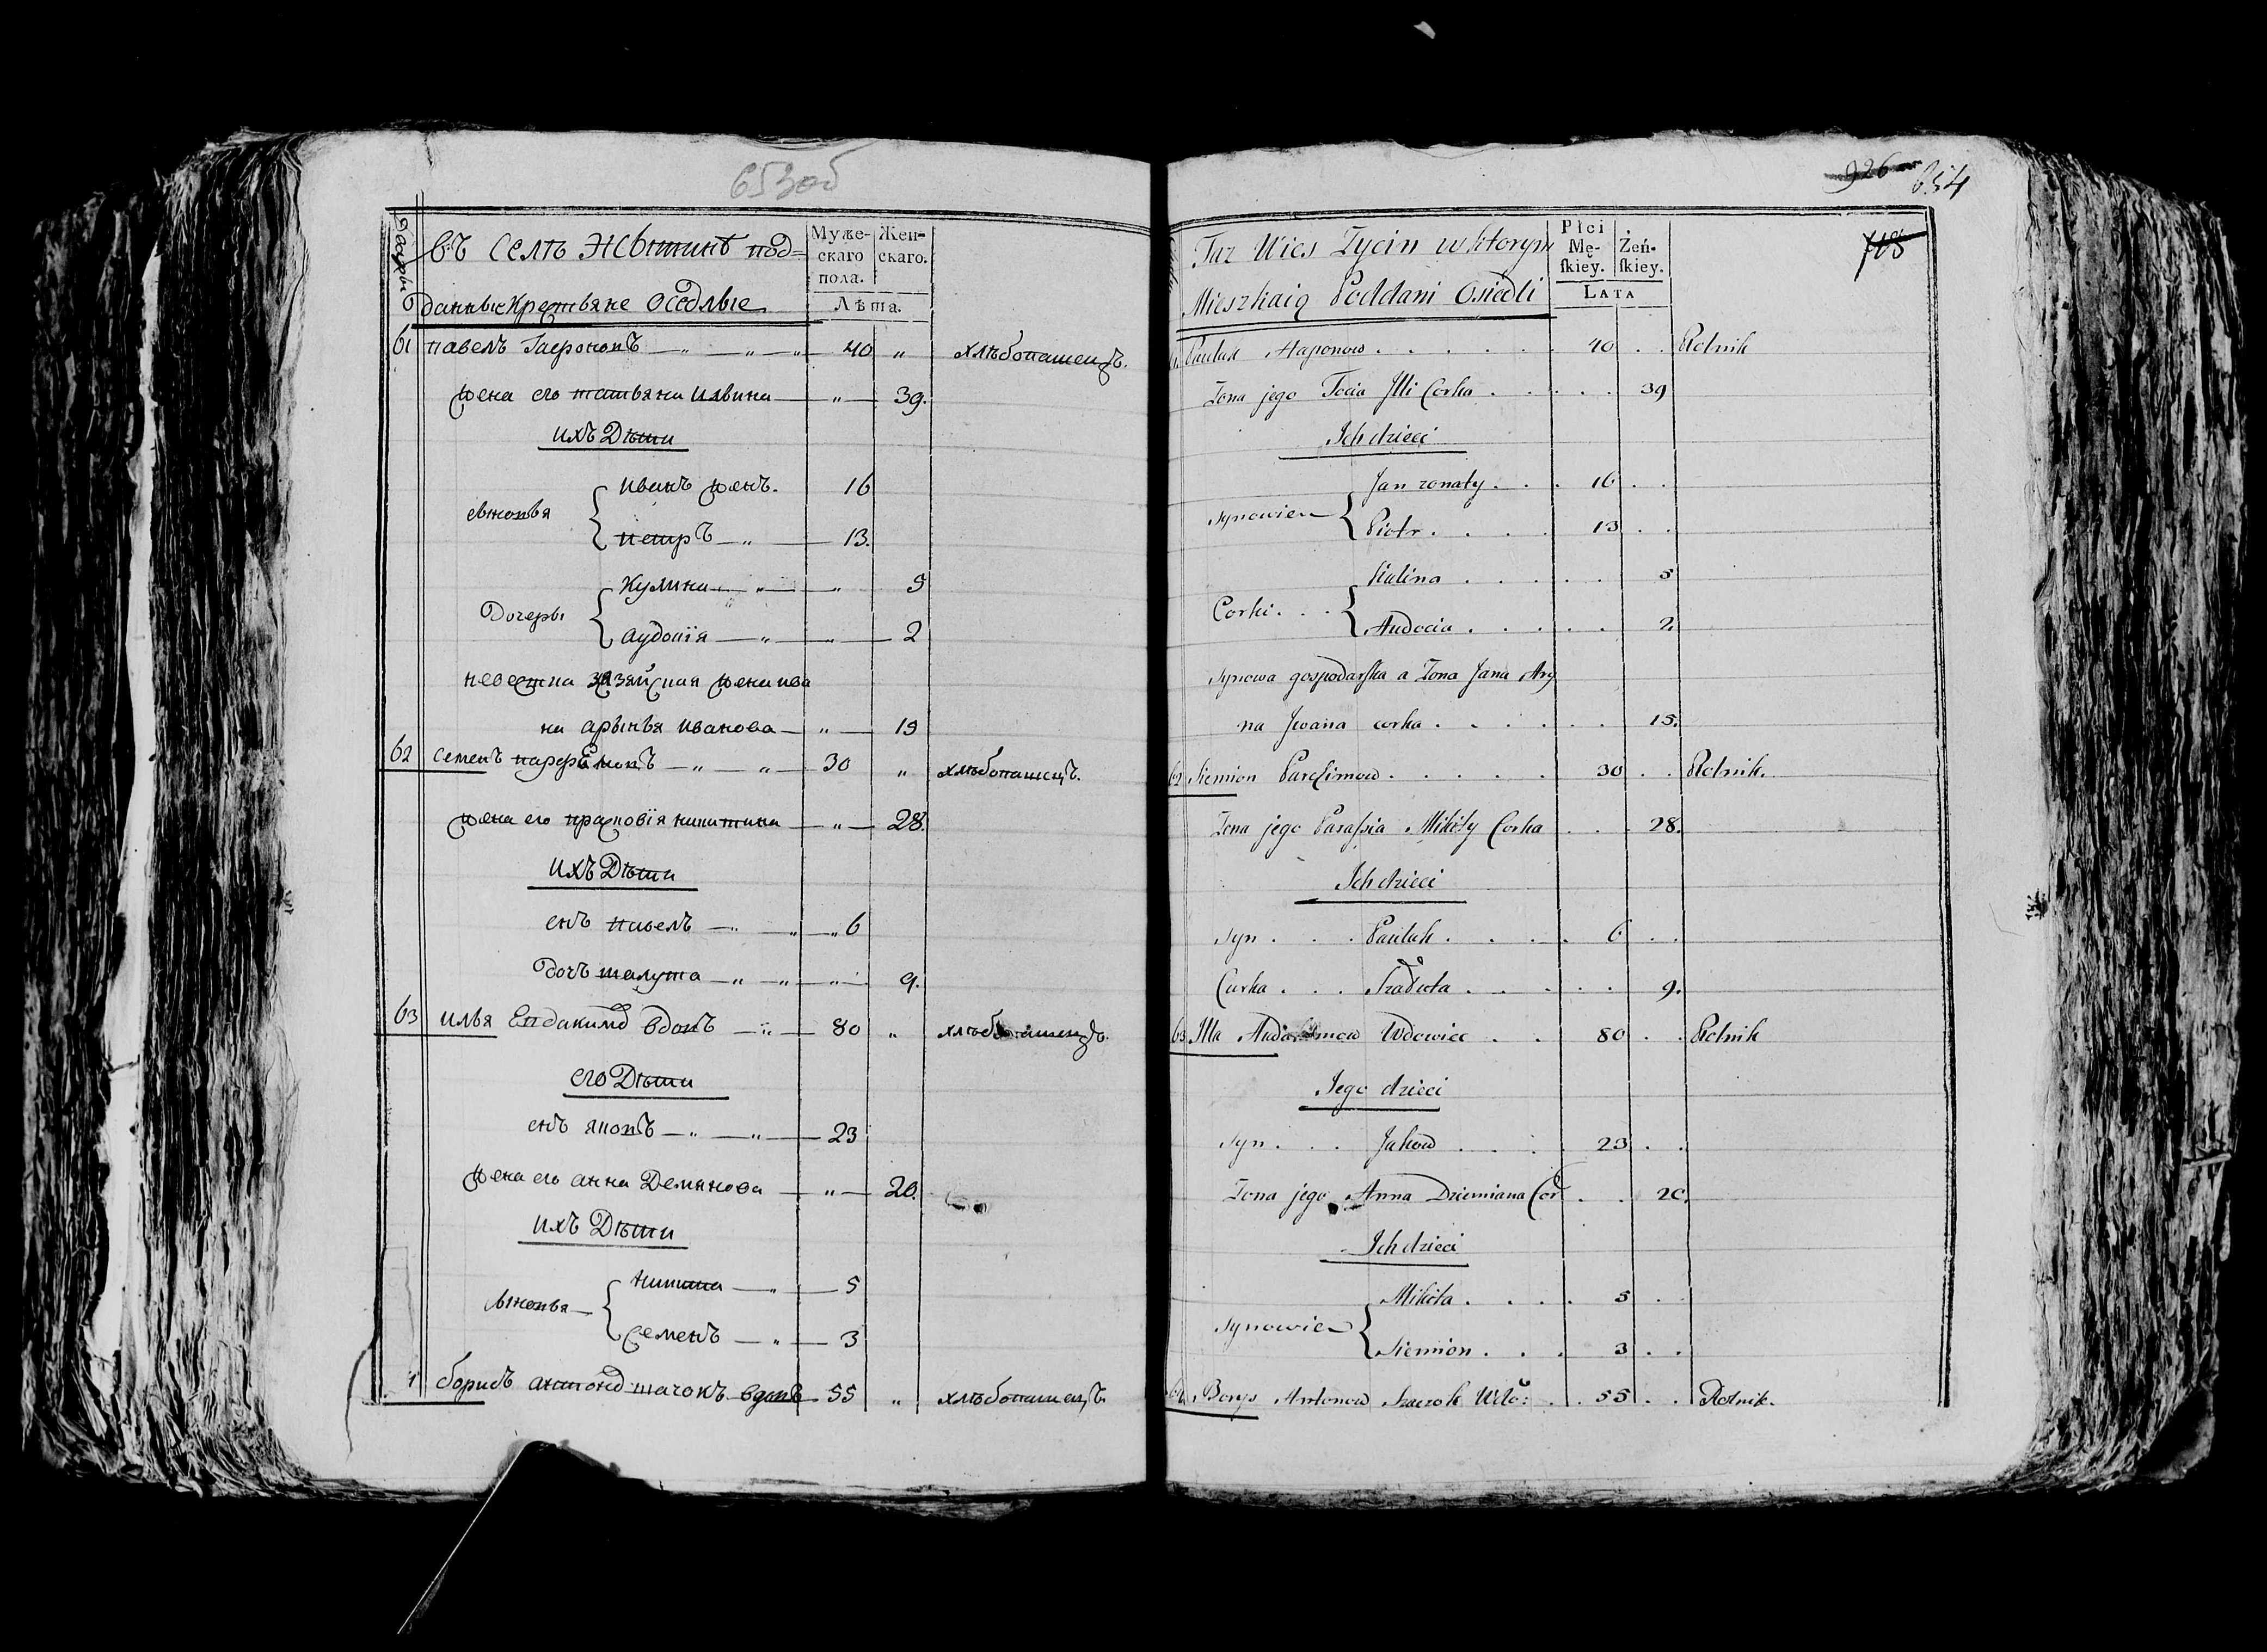 653об
Дворы
въ селѣ Жытинѣ под=
Муже-
скаго
пола.
Жен-
скаго.
данные крестьяне оседлые
Лѣта.
61 павелъ Гапоновъ — " — " — 40 " хлѣбопашецъ.
жена его татьяна ильина — " — 39.
ихъ Дѣти
сыновья
иванъ жен. 16
петръ — " — 13.
Дочеры
Кулина — " — " 5
аудоція — " — " — 2
невестка хазяйская жена ива
на арынья иванова — " — 15
62 семенъ парфѣмовъ — " — " — 30 " хлѣбопашецъ.
жена его прасковія никитина — " — 28.
ихъ Дѣти
снъ павелъ — " — " — 6
Дочъ шалута — " — " — " — 9.
63 илья Евдакимо вдовъ — " — 80 " хлѣбопашецъ.
его Дѣти
снъ яковъ — " — " — 23
жена его анна Демянова — " — 20.
ихъ Дѣти
сыновья —
никита — " — 5
семенъ — " — 3
борисъ антоно шачокъ вдовъ 55 " хлѣбопашецъ
926 654
Taz Wies Zycin w ktorym
Płci
Mę-
ſkiey.
Żeń-
ſkiey.
708
Mieszkaią Poddani Osiedli
LATA
Pauluk Haponow . . . . . . 40 . . Rolnik
Zona jego Tocia Illi Corka . . . . . 39
Ich dzieci
Synowien
Jan zonaty . . . 16 . .
Piotr . . . . 13 . .
Corki . . .
Kulina . . . . . 5
Audocia . . . . . 2.
Synowa gospodarſka a Zona Jana Ary
na Jwana corka . . . . . . 15.
62 Siemion Parfimow . . . . . 30 . . Rolnik.
Zona jego Parasia Mikity Corka . . . 28.
Ich dzieci
Syn . . . Pauluk . . . . 6 . .
Curka . . . Szałuta . . . . . 9.
63 Illa Audakimow Wdowiec . . 80 . . Rolnik
Jego dzieci
Syn . . . Jakow . . . . 23 . .
Zona jego Anna Dziemiana Cor . . 20.
Ich dzieci
Synowie
Mikita . . . . 5 . .
Siemion . . . 3 . .
64 Borys Antonow Szaczok Wdo: . . 55 . . Rolnik.